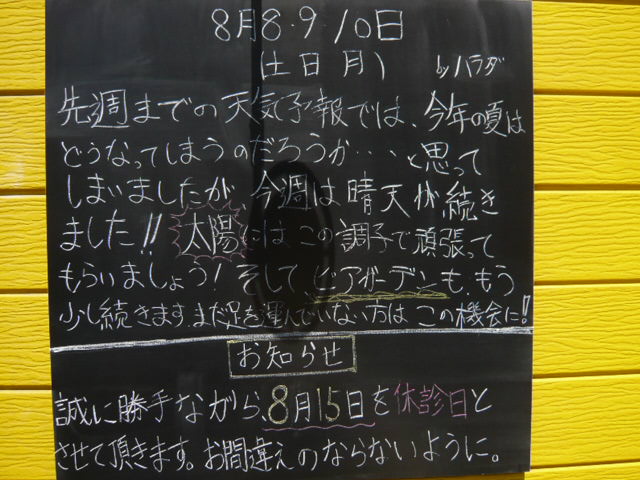 8月8・9 10日
(土日月) by ハラダ
先週までの天気予報では、今年の夏は
どうなってしまうのだろうか・・・・と思って
しまいましたが、今週は晴天が続き
ました!! 太陽にはこの調子で頑張って
もらいましょう! そしてビアガーデンも、もう
少し続きます。まだ足を運んでいない方はこの機会に!!
お知らせ
誠に勝手ながら、8月15日を休診日と
させて頂きます。お間違えのならないように。